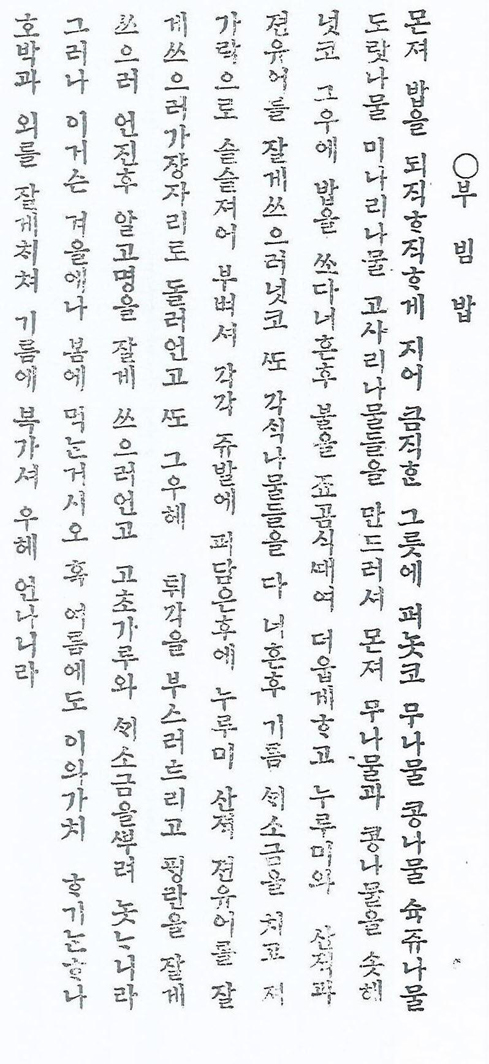 ○부빔밥
몬져 밥을 되직ᄒᆞ직ᄒᆞ게 지어 큼직ᄒᆞᆫ 그릇에 퍼놋코 무나물 콩나물 슉쥬나물
도랏나물 미나리나물 고사리나물들을 만드러셔 몬져 무나물과 콩나물을 솟헤
넛코 그우에 밥을 쏘다너흔후 불을 죠곰식ᄯᅢ여 더웁게ᄒᆞ고 누루미와 산젹과
젼유어를 잘게쓰으러넛코 ᄯᅩ 각ᄉᆡᆨ나물들을 다 너흔후 기름 ᄭᆡ소금을치고 져
가락으로 슬슬져어 부뷔셔 각각 쥬발에 퍼담은후에 누루미 산젹 젼유어를 잘
게쓰으러가쟝자리로 돌려언고 ᄯᅩ 그우헤 튀각을 부스러ᄯᅳ리고 핑란을 잘게
쓰으러 언진후 알고명을 잘게 쓰으러언고 고초가루와 ᄭᆡ소금을ᄲᅮ려 놋ᄂᆞ니라
그러나 이거슨 겨을에나 봄에 먹ᄂᆞᆫ거시오 혹 여름에도 이와가치 ᄒᆞ기ᄂᆞᆫᄒᆞ나
호박과 외를 잘게치쳐 기름에 복가셔 우헤 언나니라